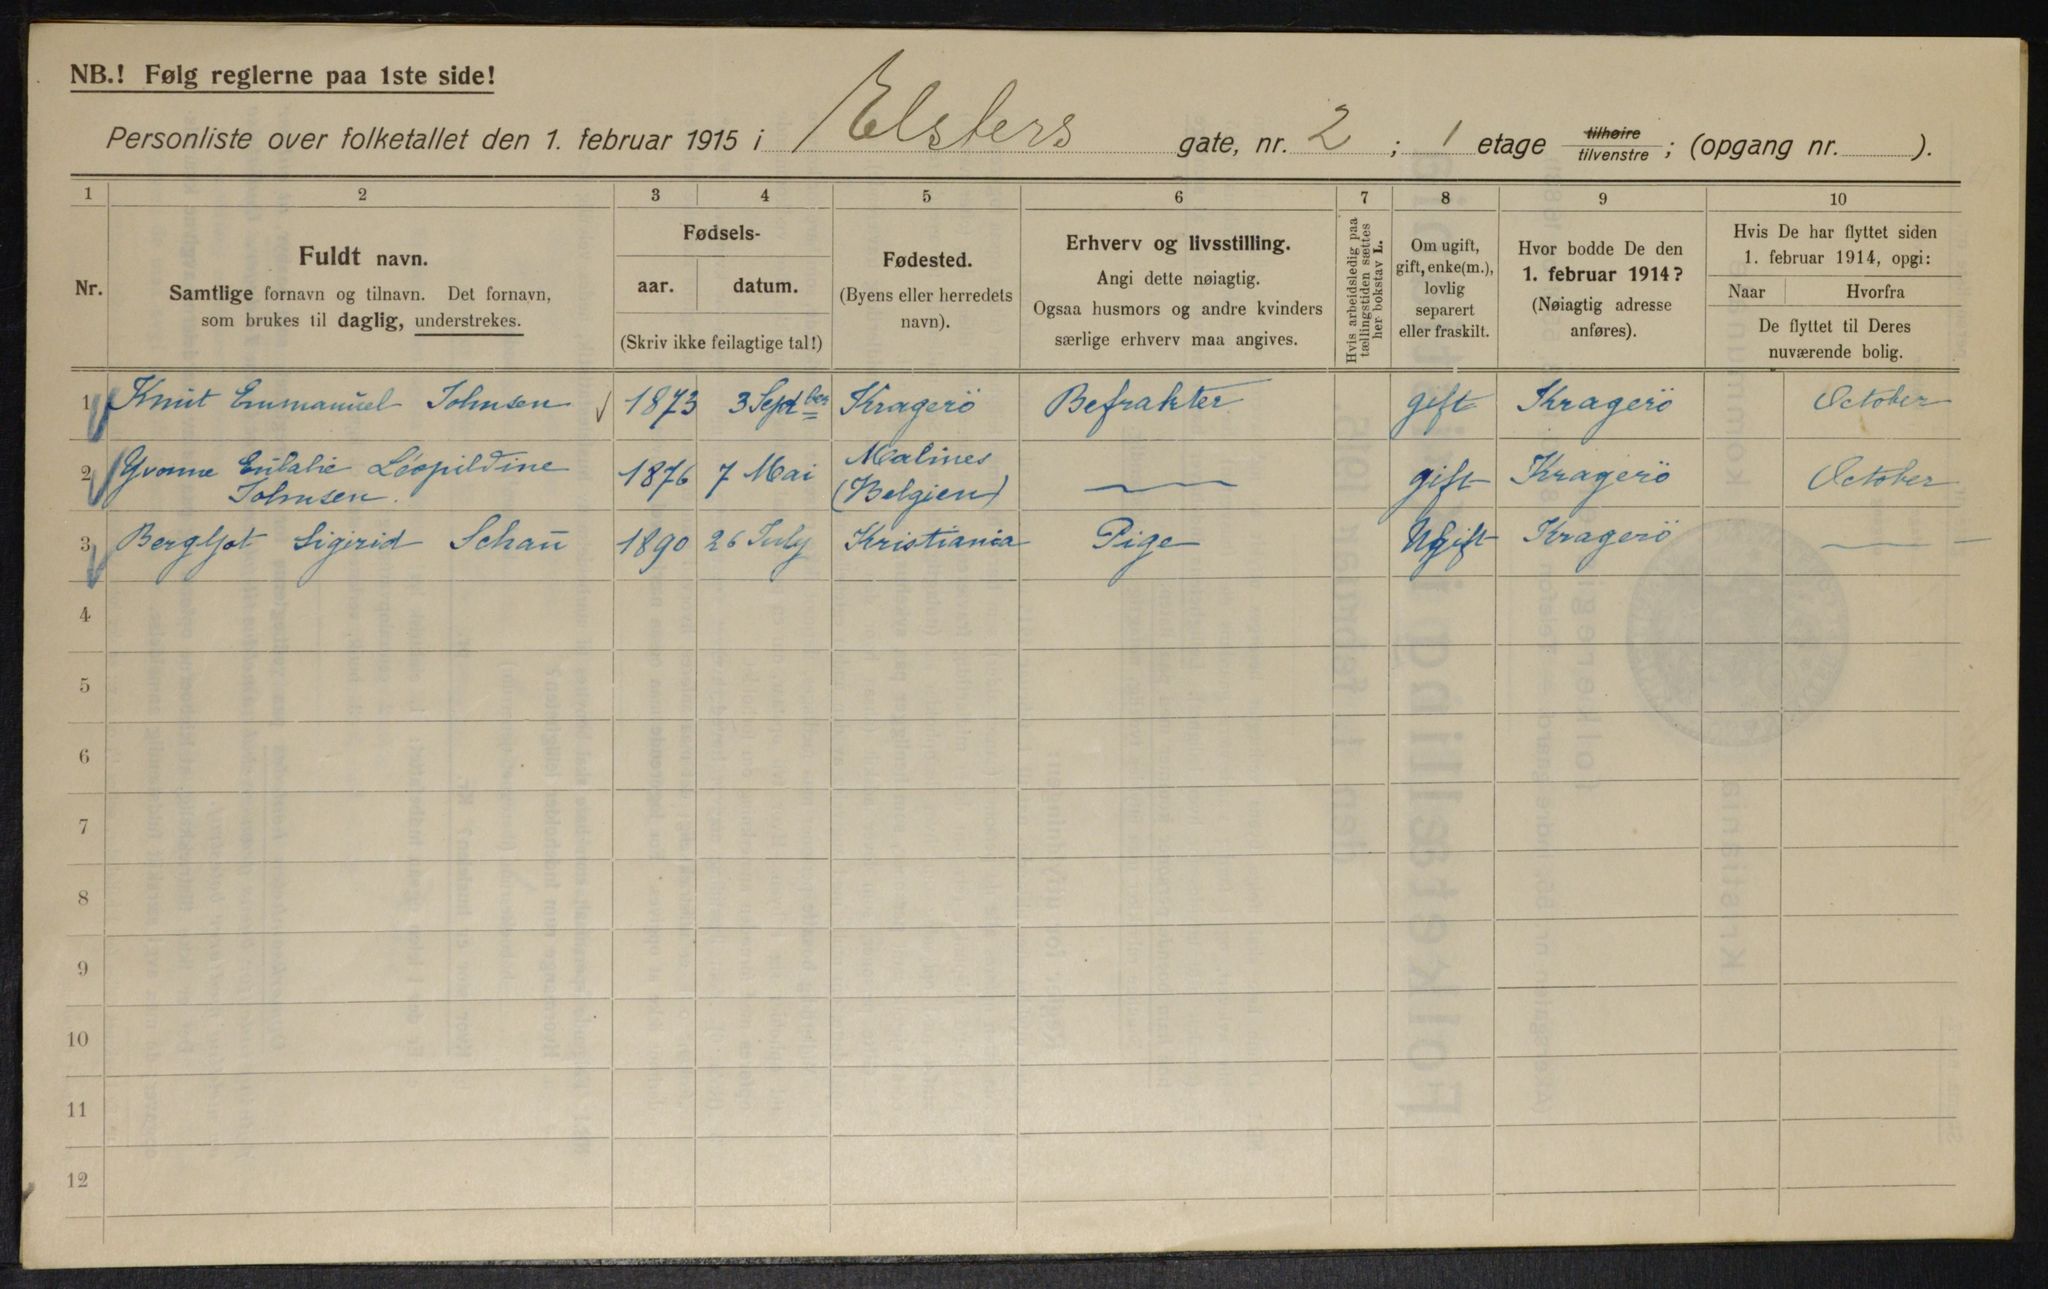 NB.! Følg reglerne paa 1ste side!
Personliste over folketallet den 1. februar 1915 i Elsters gate, nr. 2 ; 1 etage tilhøire tilvenstre ; (opgang nr. ).
1 2 3 4 5 6 7 8 9 10
Nr.
Fuldt navn.
Samtlige fornavn og tilnavn. Det fornavn,
som brukes til daglig, understrekes.
Fødsels-
aar. datum.
(Skriv ikke feilagtige tal!)
Fødested.
(Byens eller herredets
navn).
Erhverv og livsstilling.
Angi dette nøiagtig.
Ogsaa husmors og andre kvinders
særlige erhverv maa angives.
Hvis arbeidsledig paa
tællingstiden sættes
her bokstav L.
Om ugift,
gift, enke(m.),
lovlig
separert
eller fraskilt.
Hvor bodde De den
1. februar 1914?
(Nøiagtig adresse
anføres).
Hvis De har flyttet siden
1. februar 1914, opgi:
Naar Hvorfra
De flyttet til Deres
nuværende bolig.
1 Knut Emmanuel Johnsen 1873 3 Septber Kragerö Befrakter gift Kragerö October
2 Yvonne Eulalie Léopildine
Johnsen. 1876 7 Mai Malines
(Belgien) gift Kragerö October
3 Bergljot Sigirid Schau 1890 26 July Kristiania Pige Ugift Kragerö
4
5
6
7
8
9
10
11
12